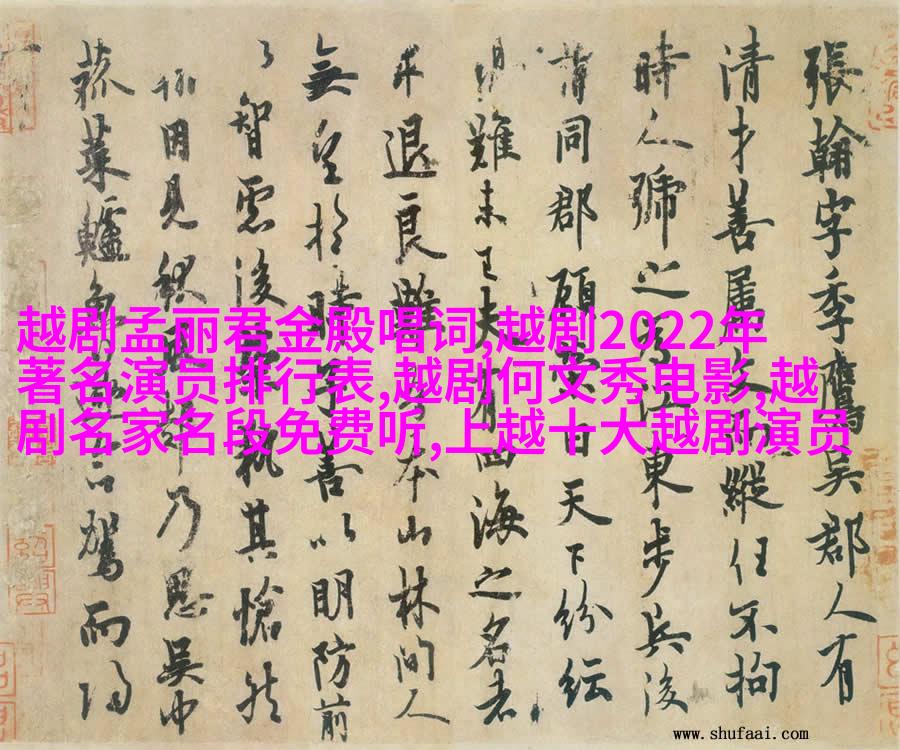 張翰字季鷹吳郡人有
清才善屬文而縱任不拘
時人號之為江東步兵後
同郡顧榮曰天下紛紜
難未已夫有四海之名者
求退良難吾本山林間人
無望於時子善以明防前
以智慮後榮執其愴然
翰因見秋風起乃思吳中
菰菜鱸魚命駕而歸
越剧孟丽君金殿唱词,越剧2022年
著名演员排行表,越剧何文秀电影,越
剧名家名段免费听,上越十大越剧演员
www.shufaai.com